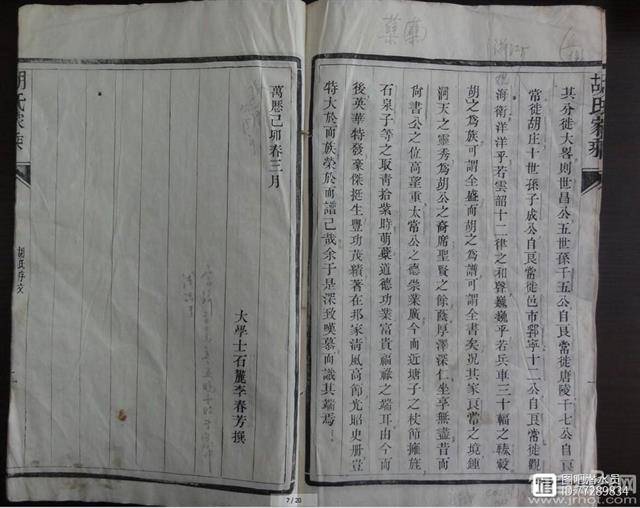 胡氏家乘
其分徙大畧則世昌公五世孫千五公自艮常徙唐陵十七公自艮
常徙胡庄十世孫子成公自艮常徙邑市鄄寧十二公自艮常徙觀
海衛洋洋乎若雲韶十二律之和聲巍巍乎若兵車三十輻之轃轂
胡之為族可謂全盛而胡之為譜可謂全書矣況其家艮常之境鍾
洞天之靈秀為胡公之裔席聖賢之餘蔭厚澤深仁坐享無盡昔而
尚書公之位高望重太常公之德崇業廣今而近塘子之杖節擁旄
石泉子等之取青拾紫時萌蘖道德功業富貴福祿之端耳由今而
後英華特發豪傑挺生豐功茂績著在邦家清風高節光昭史册豈
特大於而族榮於而譜已哉余于是深致嘆慕而識其端焉
萬曆己卯春三月
大學士石麓李春芳撰
胡氏家乘
胡氏序文
7 / 20
图吧潜水员
ID:77289834
www.jrhot.com